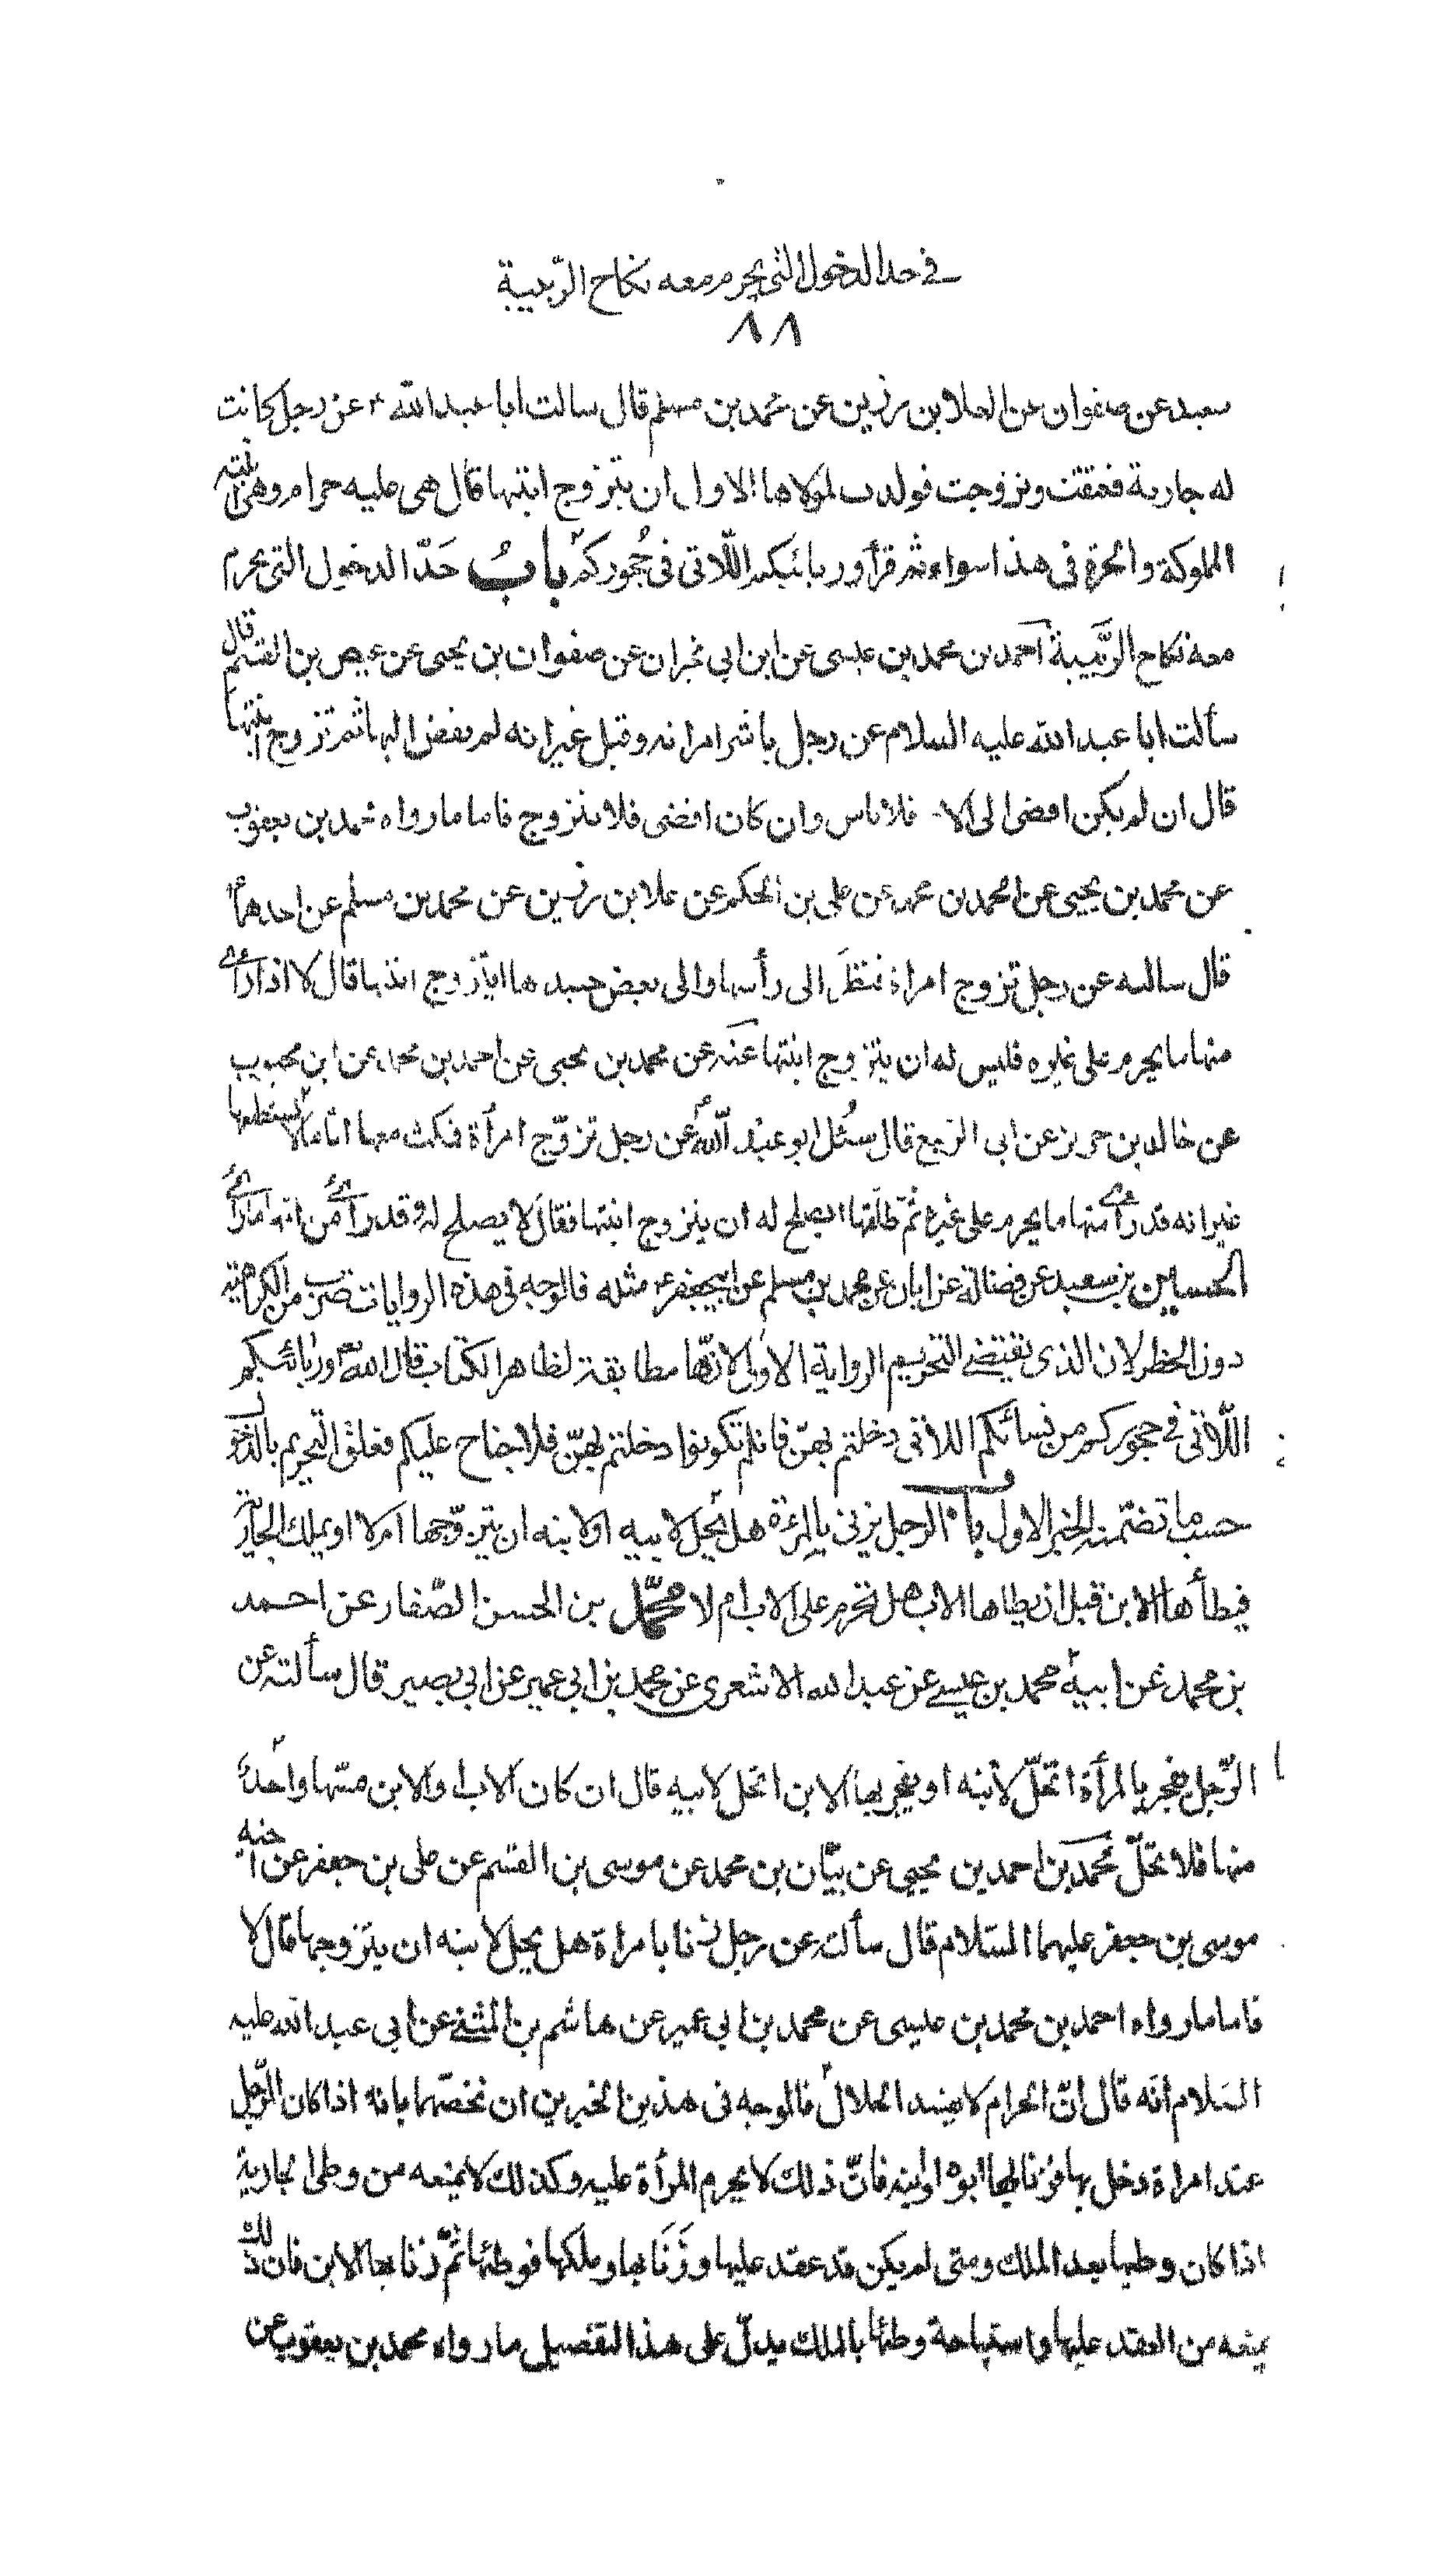 في حد الدخول التي يحرم معه نكاح الربيبة
٨٨
سعيد عن صفوان عن العلا بن رزين عن محمد بن مسلم قال سالت ابا عبد الله ع عن رجل كانت
له جارية فعتقت وتزوجت فولدت لمولاها الاول ان يتزوج ابنتها قال هى عليه حرام وهى ابنته
المملوكة والحرة فى هذا سواء ثم قرأ وربائبكم اللّاتى فى حُجوركم بابُ حَدّ الدخول التى يحرم
معه نكاح الرّبيبة احمد بن محمد بن عيسى عن ابن ابى نجران عن صفوان بن يحيى عن عيص بن القسم قال
سألت ابا عبد الله عليه السلام عن رجل باشر امراته وقبل غير انه لم يفض اليها ثم تزوج ابنتها
قال ان لم يكن افضى الى الا فلا باس وان كان افضى فلا يتزوج فاما ما رواه محمد بن يعقوب
عن محمد بن يحيى عن احمد بن محمد عن على بن الحكم عن علا بن رزين عن محمد بن مسلم عن احدهما ع
قال سالته عن رجل تزوج امراة فنظَر الى رأسها والى بعض جسدها ايتزوج ابنتها قال لا اذا راى
منها ما يحرم على غيره فليس له ان يتزوج ابنتها عنه عن محمد بن يحيى عن احمد بن محمد عن ابن محبوب
عن خالد بن جريز عن ابى الربيع قال سُئل ابو عبد الله ع عن رجل تزوّج امرأة فمكث معها اياما لا يستطيعها
غير انه قد راى منها ما يحرم على غيره ثمّ طلّقها ايصلح له ان يتزوج ابنتها فقال لا يصلح له وقد راى من امها ما راى
الحسين بن سعيد عن فضالة عن ابان عن محمد بن مسلم عن ابيجعفر ع مثله فالوجه في هذه الروايات ضرب من الكراهية
دون الحظر لان الذى يقتضى التحريم الرواية الاولى لانّها مطابقة لظاهر الكتاب قال الله تعالى وربائبكم
اللّاتى في حجوركم من نسائكم اللاتى دخلتم بهنّ فان لم تكونوا دخلتم بهنّ فلا جناح عليكم فعلق التحريم بالدخول
حسب ما تضمّنه الخبر الاول باب الرجل يزنى بالمرءة هل يحل لابيه او لابنه ان يتزوّجها ام لا او يملك الجارية
فيطأها الابن قبل ان يطاها الاب هل تحرم على الاب ام لا محمّد بن الحسن الصّفار عن احمد
بن محمد عن ابيه محمد بن عيسى عن عبد الله الاشعرى عن محمد بن ابى عمير عن ابى بصير قال سألته عن
الرّجل يفجر بالمرأة اتحلّ لابنه او يفجر بها الابن اتحل لابيه قال ان كان الاب او الابن مسّها واحد
منها فلا تحلّ محمد بن احمد بن يحيى عن بيّان بن محمد عن موسى بن القسم عن على بن جعفر عن اخيه
موسى بن جعفر عليهما السّلام قال سألته عن رجل زنا بامراة هل يحل لابنه ان يتزوجها قال لا
فاما ما رواه احمد بن محمد بن عيسى عن محمد بن ابى عمير عن هاشم بن المثنى عن ابى عبد الله عليه
السّلام انّه قال انّ الحرام لا يفسد الحلال فالوجه فى هذين الخبرين ان نخصّهما بانه اذا كان الرّجل
عند امراة دخل بها فزنا بها ابوه او ابنه فانّ ذلك لا يحرم المرأة عليه وكذلك لا يمنعه من وطى الجارية
اذا كان وطيها بعد الملك ومتى لم يكن قد عقد عليها وزَنَا بها وملكها فوطئها ثمّ زنا بها الابن فان ذلك
يمنعه من العقد عليها واستباحة وطئها بالملك يدلّ على هذا التفصيل ما رواه محمد بن يعقوب عن